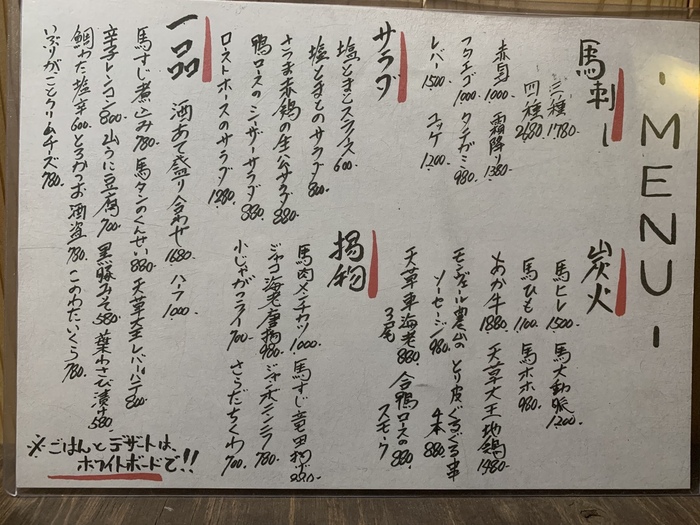 - MENU -
馬刺し
三種 1780.
四種 2680.
赤身 1000. 霜降り 1380.
フタエゴ 1000. タテガミ 980.
レバー 1500. ユッケ 1200.
炭火
馬ヒレ 1500. 馬大動脈 1200.
馬ひも 1100. 馬ホホ 980.
あか牛 1880. 天草大王地鶏 1980.
モンヴェール農山のソーセージ 980. とり皮ぐるぐる串 4本 880.
天草車海老 3尾 880. 合鴨ロースのスモーク 880.
サラダ
塩とまとスライス 600.
塩とまとのサラダ 800.
さつま赤鶏の生ハムサラダ 880.
鴨ロースのシーザーサラダ 880.
ローストホースのサラダ 1280.
揚物
馬肉メンチカツ 1000. 馬すじ竜田揚げ
ジャコ海老唐揚 980. ジャンボニンニク 780.
小じゃがフライ 700. さらだちくわ 700.
一品
酒あて盛り合わせ 1680. ハーフ 1000.
馬すじ煮込み 780. 馬タンのくんせい 880. 天草大王レバーパテ 800.
辛子レンコン 800. 山うに豆腐 700. 黒豚みそ 580. 葉わさび漬け 580.
鯛わた塩辛 600. とろかつお酒盗 780. このわたいくら 780.
いぶりがっことクリームチーズ 780.
※ごはんとデザートは、
ホワイトボードで!!